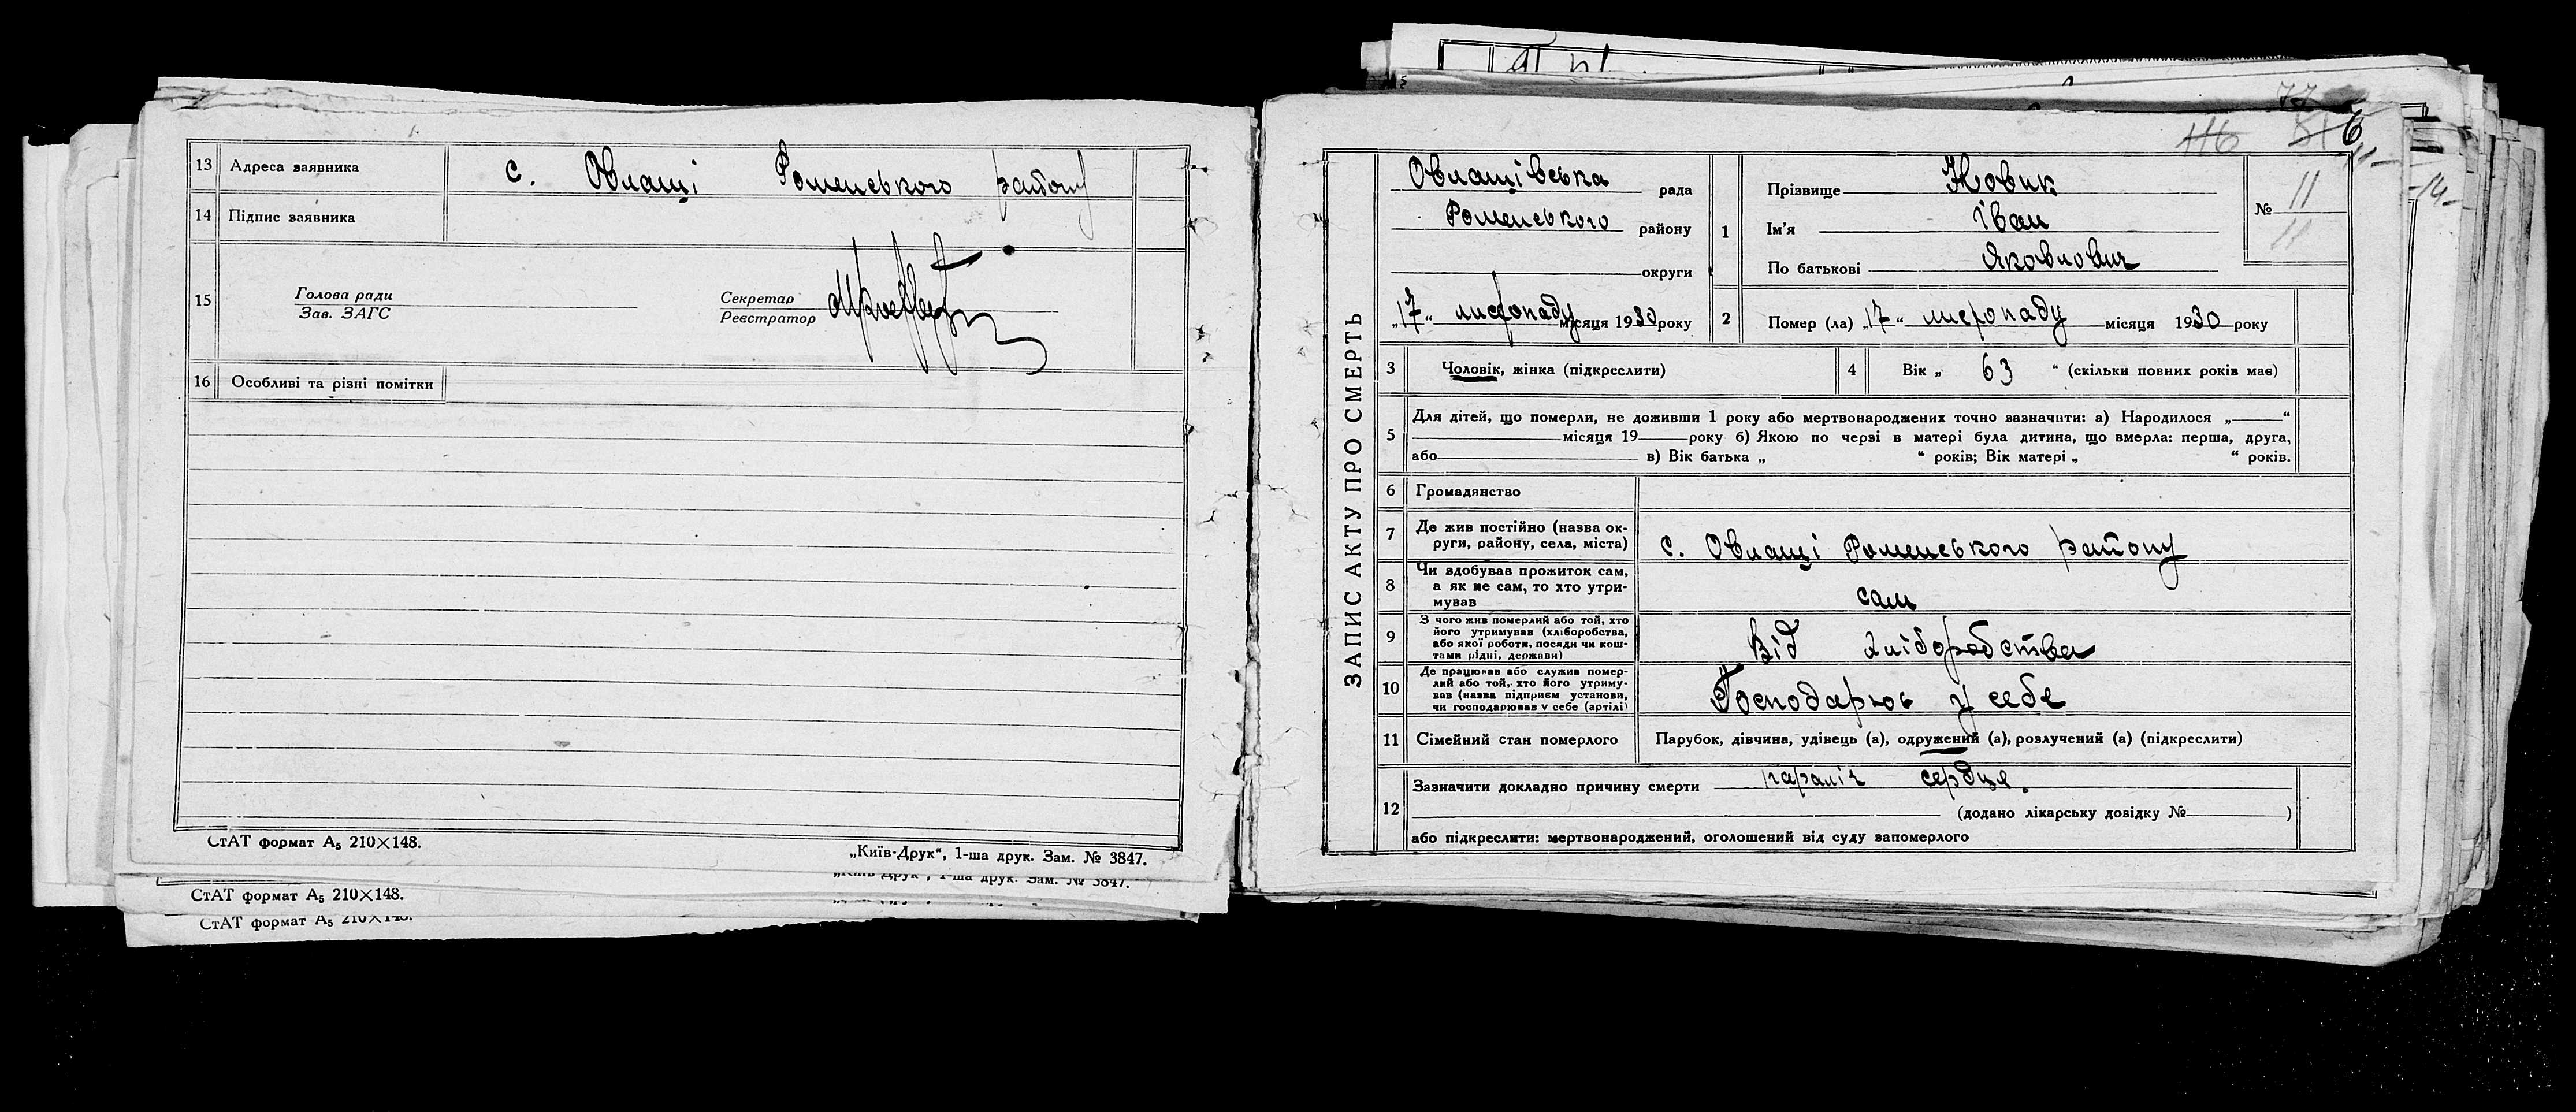 13 Адреса заявника с. Овлаші Роменського району
14 Підпис заявника
15 Голова ради
Зав. ЗАГС
Секретар
Реєстратор
16 Особливі та різні помітки
СтАТ формат А₅ 210×148.
„Київ-Друк“, 1-ша друк. Зам. № 3847.
„Київ-Друк“, 1-ша друк. Зам. № 3847.
СтАТ формат А₅ 210×148.
СтАТ формат А₅ 210×148.
116 6
ЗАПИС АКТУ ПРО СМЕРТЬ
Овлашівська рада
Роменського району
округи
„17“ листопаду місяця 1930 року
1 Прізвище Новик
Ім'я Іван
По батькові Яковлович
№ 11
11
2 Помер (ла) „17“ листопаду місяця 1930 року
3 Чоловік, жінка (підкреслити)
4 Вік „ 63 “ (скільки повних років має)
5 Для дітей, що померли, не доживши 1 року або мертвонароджених точно зазначити: а) Народилося „ “
місяця 19 року б) Якою по черзі в матері була дитина, що вмерла: перша, друга,
або в) Вік батька „ “ років; Вік матері „ “ років.
6 Громадянство
7 Де жив постійно (назва ок-
руги, району, села, міста) с. Овлаші Роменського району
8 Чи здобував прожиток сам,
а як не сам, то хто утри-
мував сам
9 З чого жив померлий або той, хто
його утримував (хліборобства,
або якої роботи, посади чи кош-
тами рідні, держави) Від хліборобства
10 Де працював або служив помер-
лий або той, хто його утриму-
вав (назва підприєм установи,
чи господарював у себе (артілі) Господарює у себе
11 Сімейний стан померлого Парубок, дівчина, удівець (а), одружений (а), розлучений (а) (підкреслити)
12 Зазначити докладно причину смерти параліч сердце.
(додано лікарську довідку № )
або підкреслити: мертвонароджений, оголошений від суду запомерлого